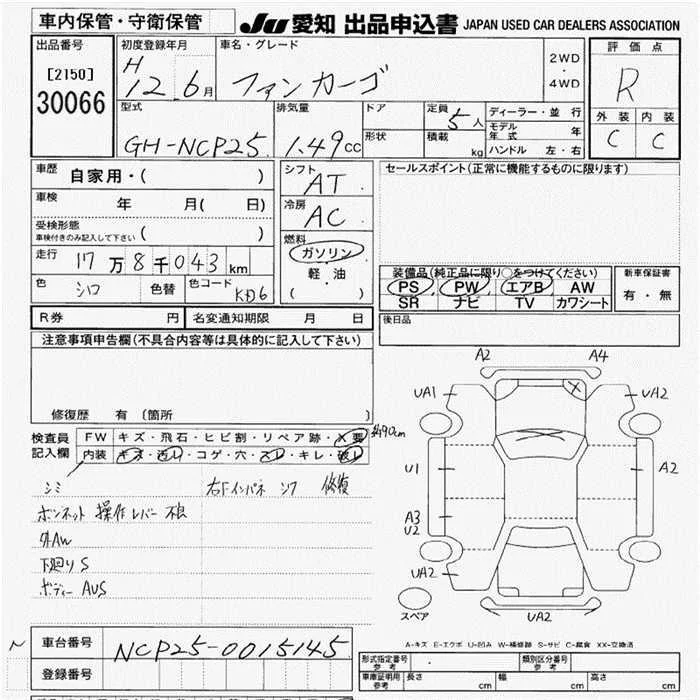 車内保管・守衛保管
JU 愛知 出品申込書 JAPAN USED CAR DEALERS ASSOCIATION
出品番号
[2150]
30066
初度登録年月
H 12.6月
車名・グレード
ファンカーゴ
2WD
・
4WD
評価点
R
外装 内装
C C
型式
GH-NCP25
排気量
1.49cc
ドア
形状
定員
5人
積載
kg
ディーラー・並行
モデル年式 年
ハンドル 左・右
車歴 自家用・( )
車検 年 月( 日)
受検形態
車検付きのみ記入して下さい ( )
走行 17万8千043km
色 シロ 色替 色コード KD6
シフト
AT
冷房
AC
燃料
ガソリン
軽・油
( )
セールスポイント(正常に機能するものに限ります)
装備品(純正品に限り○をつけてください)
PS PW エアB AW
SR ナビ TV カワシート
新車保証書
有・無
R券 円 名変通知期限 月 日
後日品
注意事項申告欄(不具合内容等は具体的に記入して下さい)
修復歴 有 〔箇所 〕
検査員
記入欄
FW キズ・飛石・ヒビ割・リペア跡・X要 約90cm
内装 キズ・汚レ・コゲ・穴・スレ・キレ・破レ
シミ 右Fインパネ シワ 修復
ボンネット 操作レバー 不良
外AW
下廻りS
ボディー AUS
A2 A4
UA1 X UA2
U1 A2
A3
U2
UA2
スペア
UA2
A-キズ E-エクボ U-凹み W-補修跡 S-サビ C-腐食 XX-交換済
N
車台番号 NCP25-0015145
登録番号
形式指定番号
参考
類別区分番号
参考
車庫証明用
参考
長さ cm 幅 cm 高さ cm